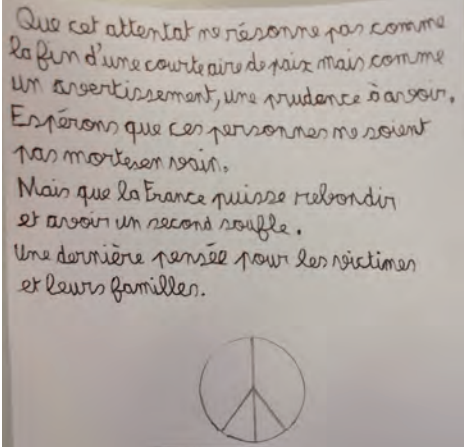 Que cet attentat ne résonne pas comme
la fin d'une courte aire de paix mais comme
un avertissement, une prudence à avoir.
Espérons que ces personnes ne soient
pas mortes en vain.
Mais que la France puisse rebondir
et avoir un second souffle.
Une dernière pensée pour les victimes
et leurs familles.